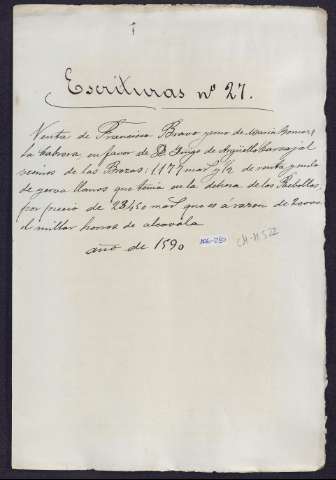 Escrituras nº 27.
Venta de Francisco Bravo yerno de María Gomez
la Cabrera en favor de D. Diego de Argüello Carvajal
vecinos de las Brozas: 1177 mar.s y ½ de renta y medio
de yerva llanos que tenia en la dehesa de los Rebollos,
por precio de 28.450 mar.s que es á razon de
el millar horros de alcavala.
año de 1590
CH-M 522